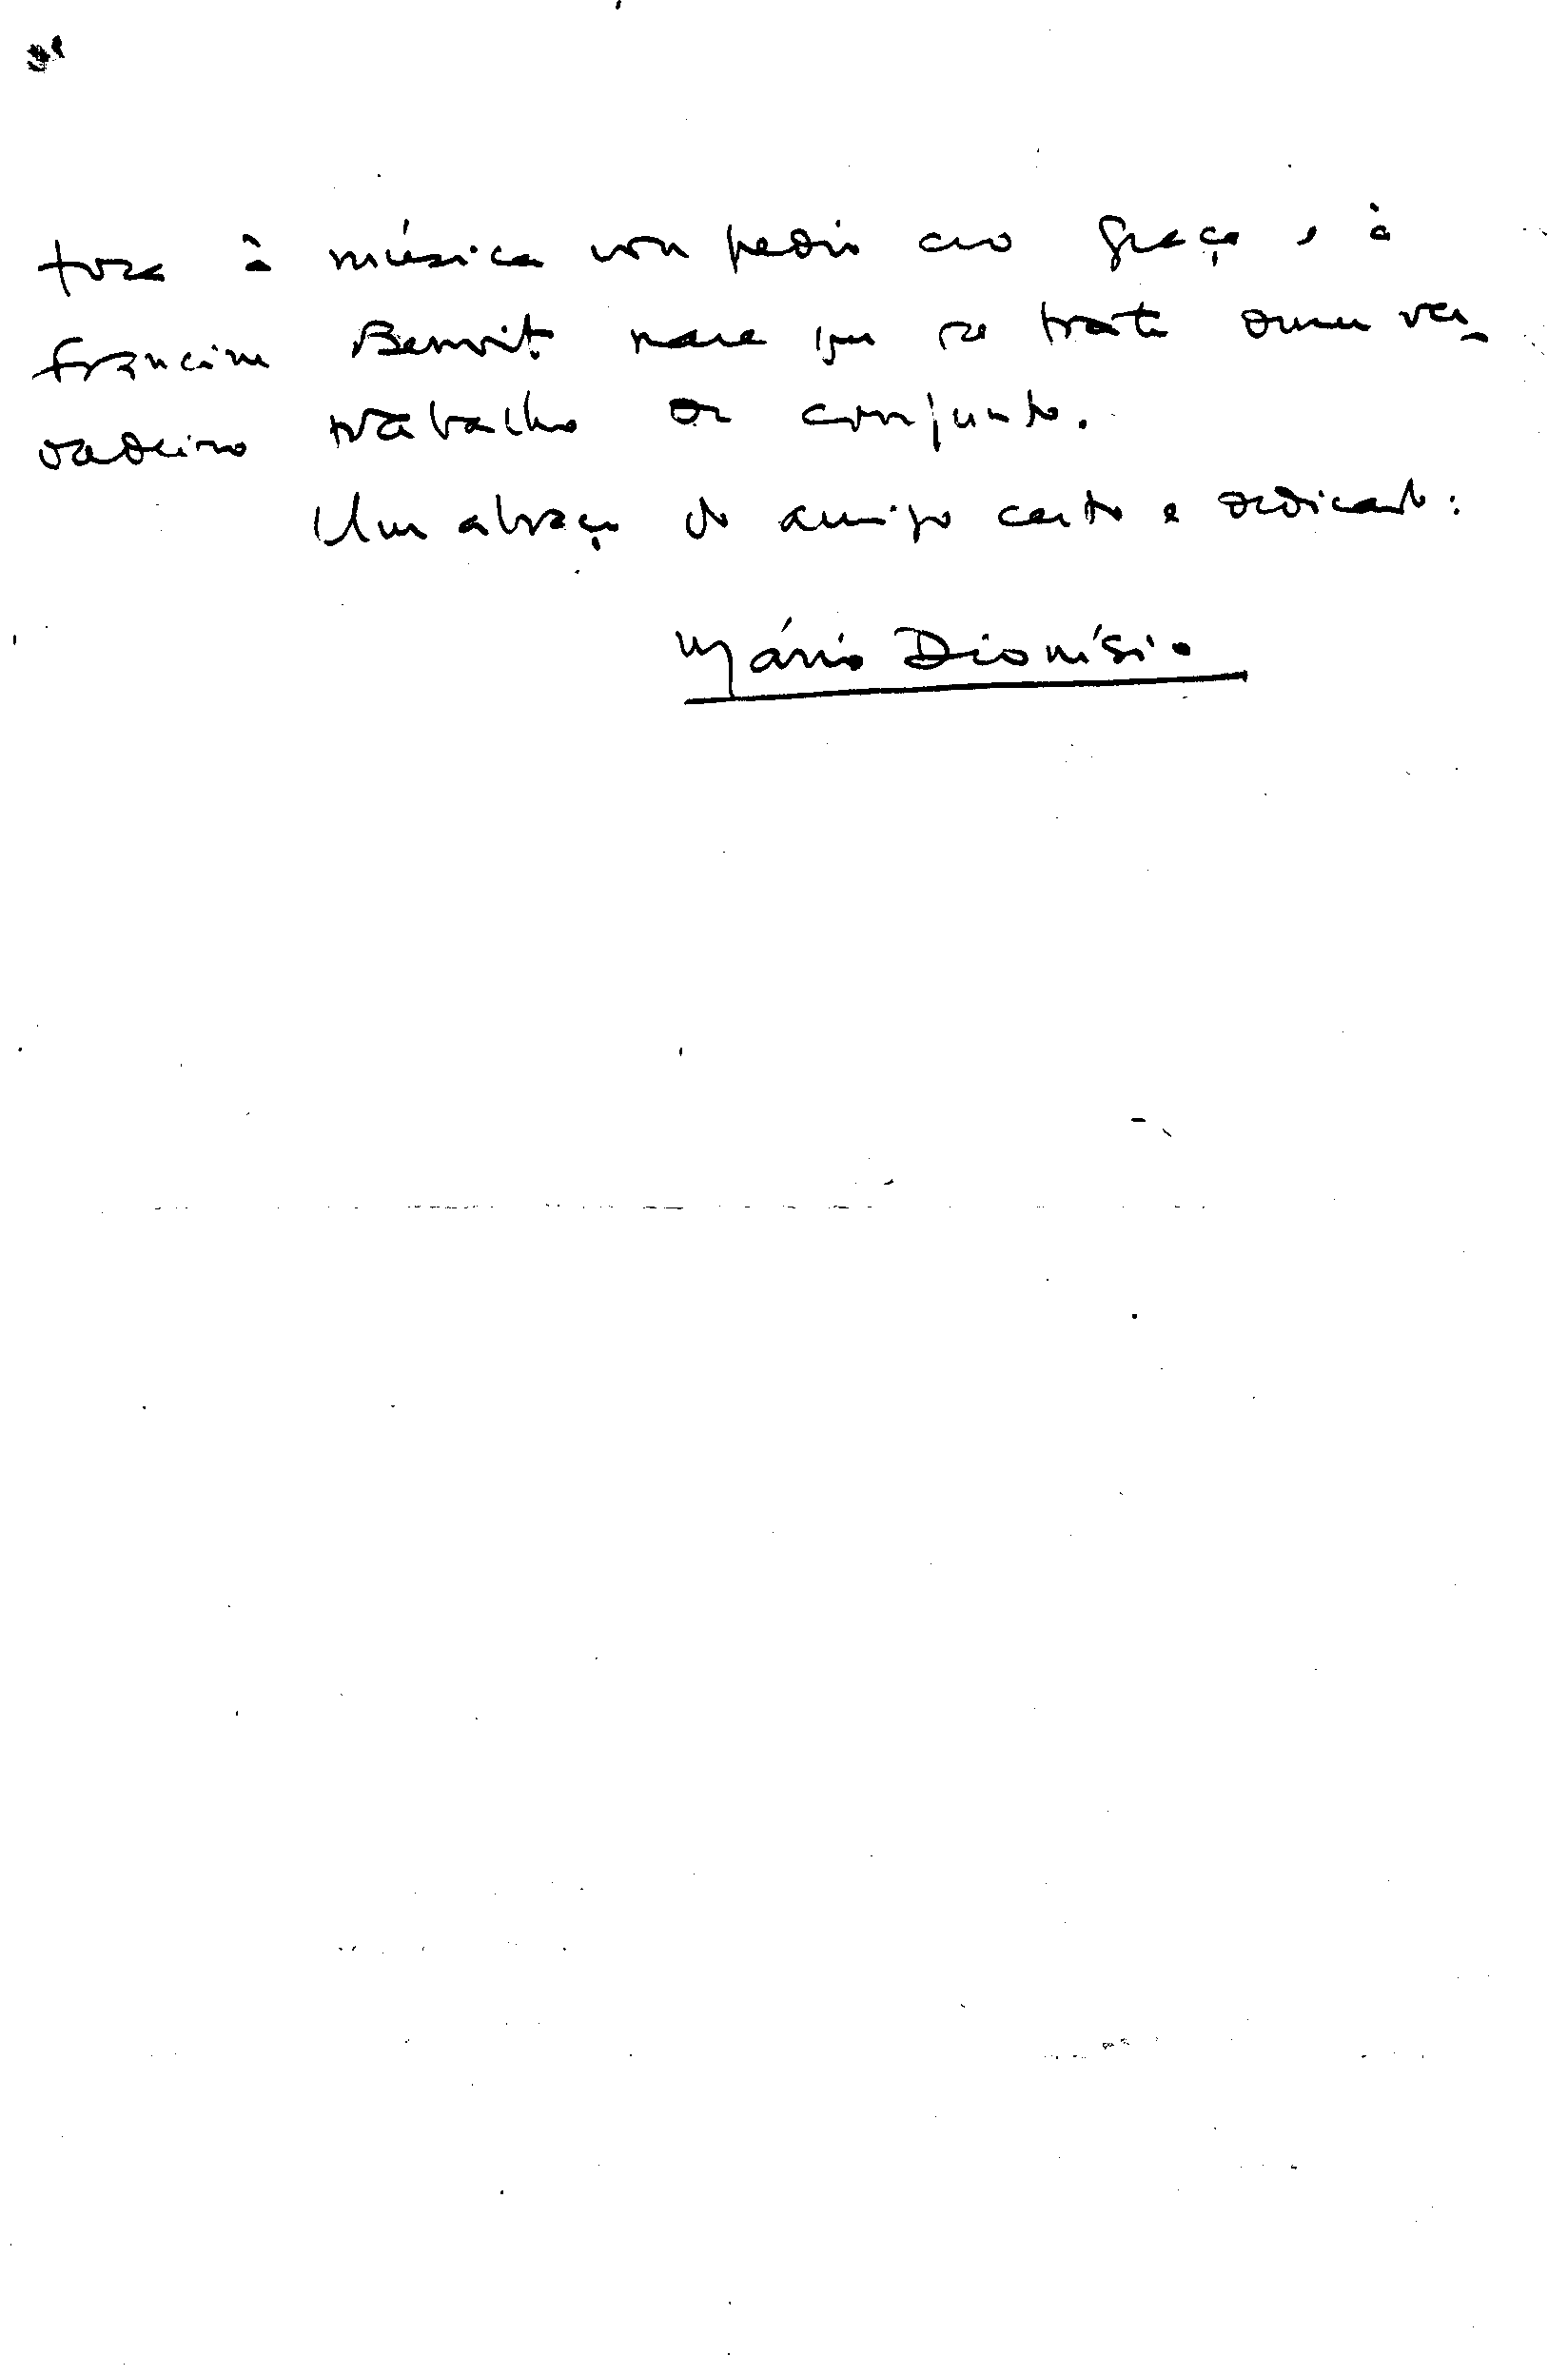 toca à música vou pedir ao Graça e à
Francine Benoit para que se trate dum ver-
dadeiro trabalho de conjunto.
Um abraço do amigo certo e dedicado:
Mário Dionísio